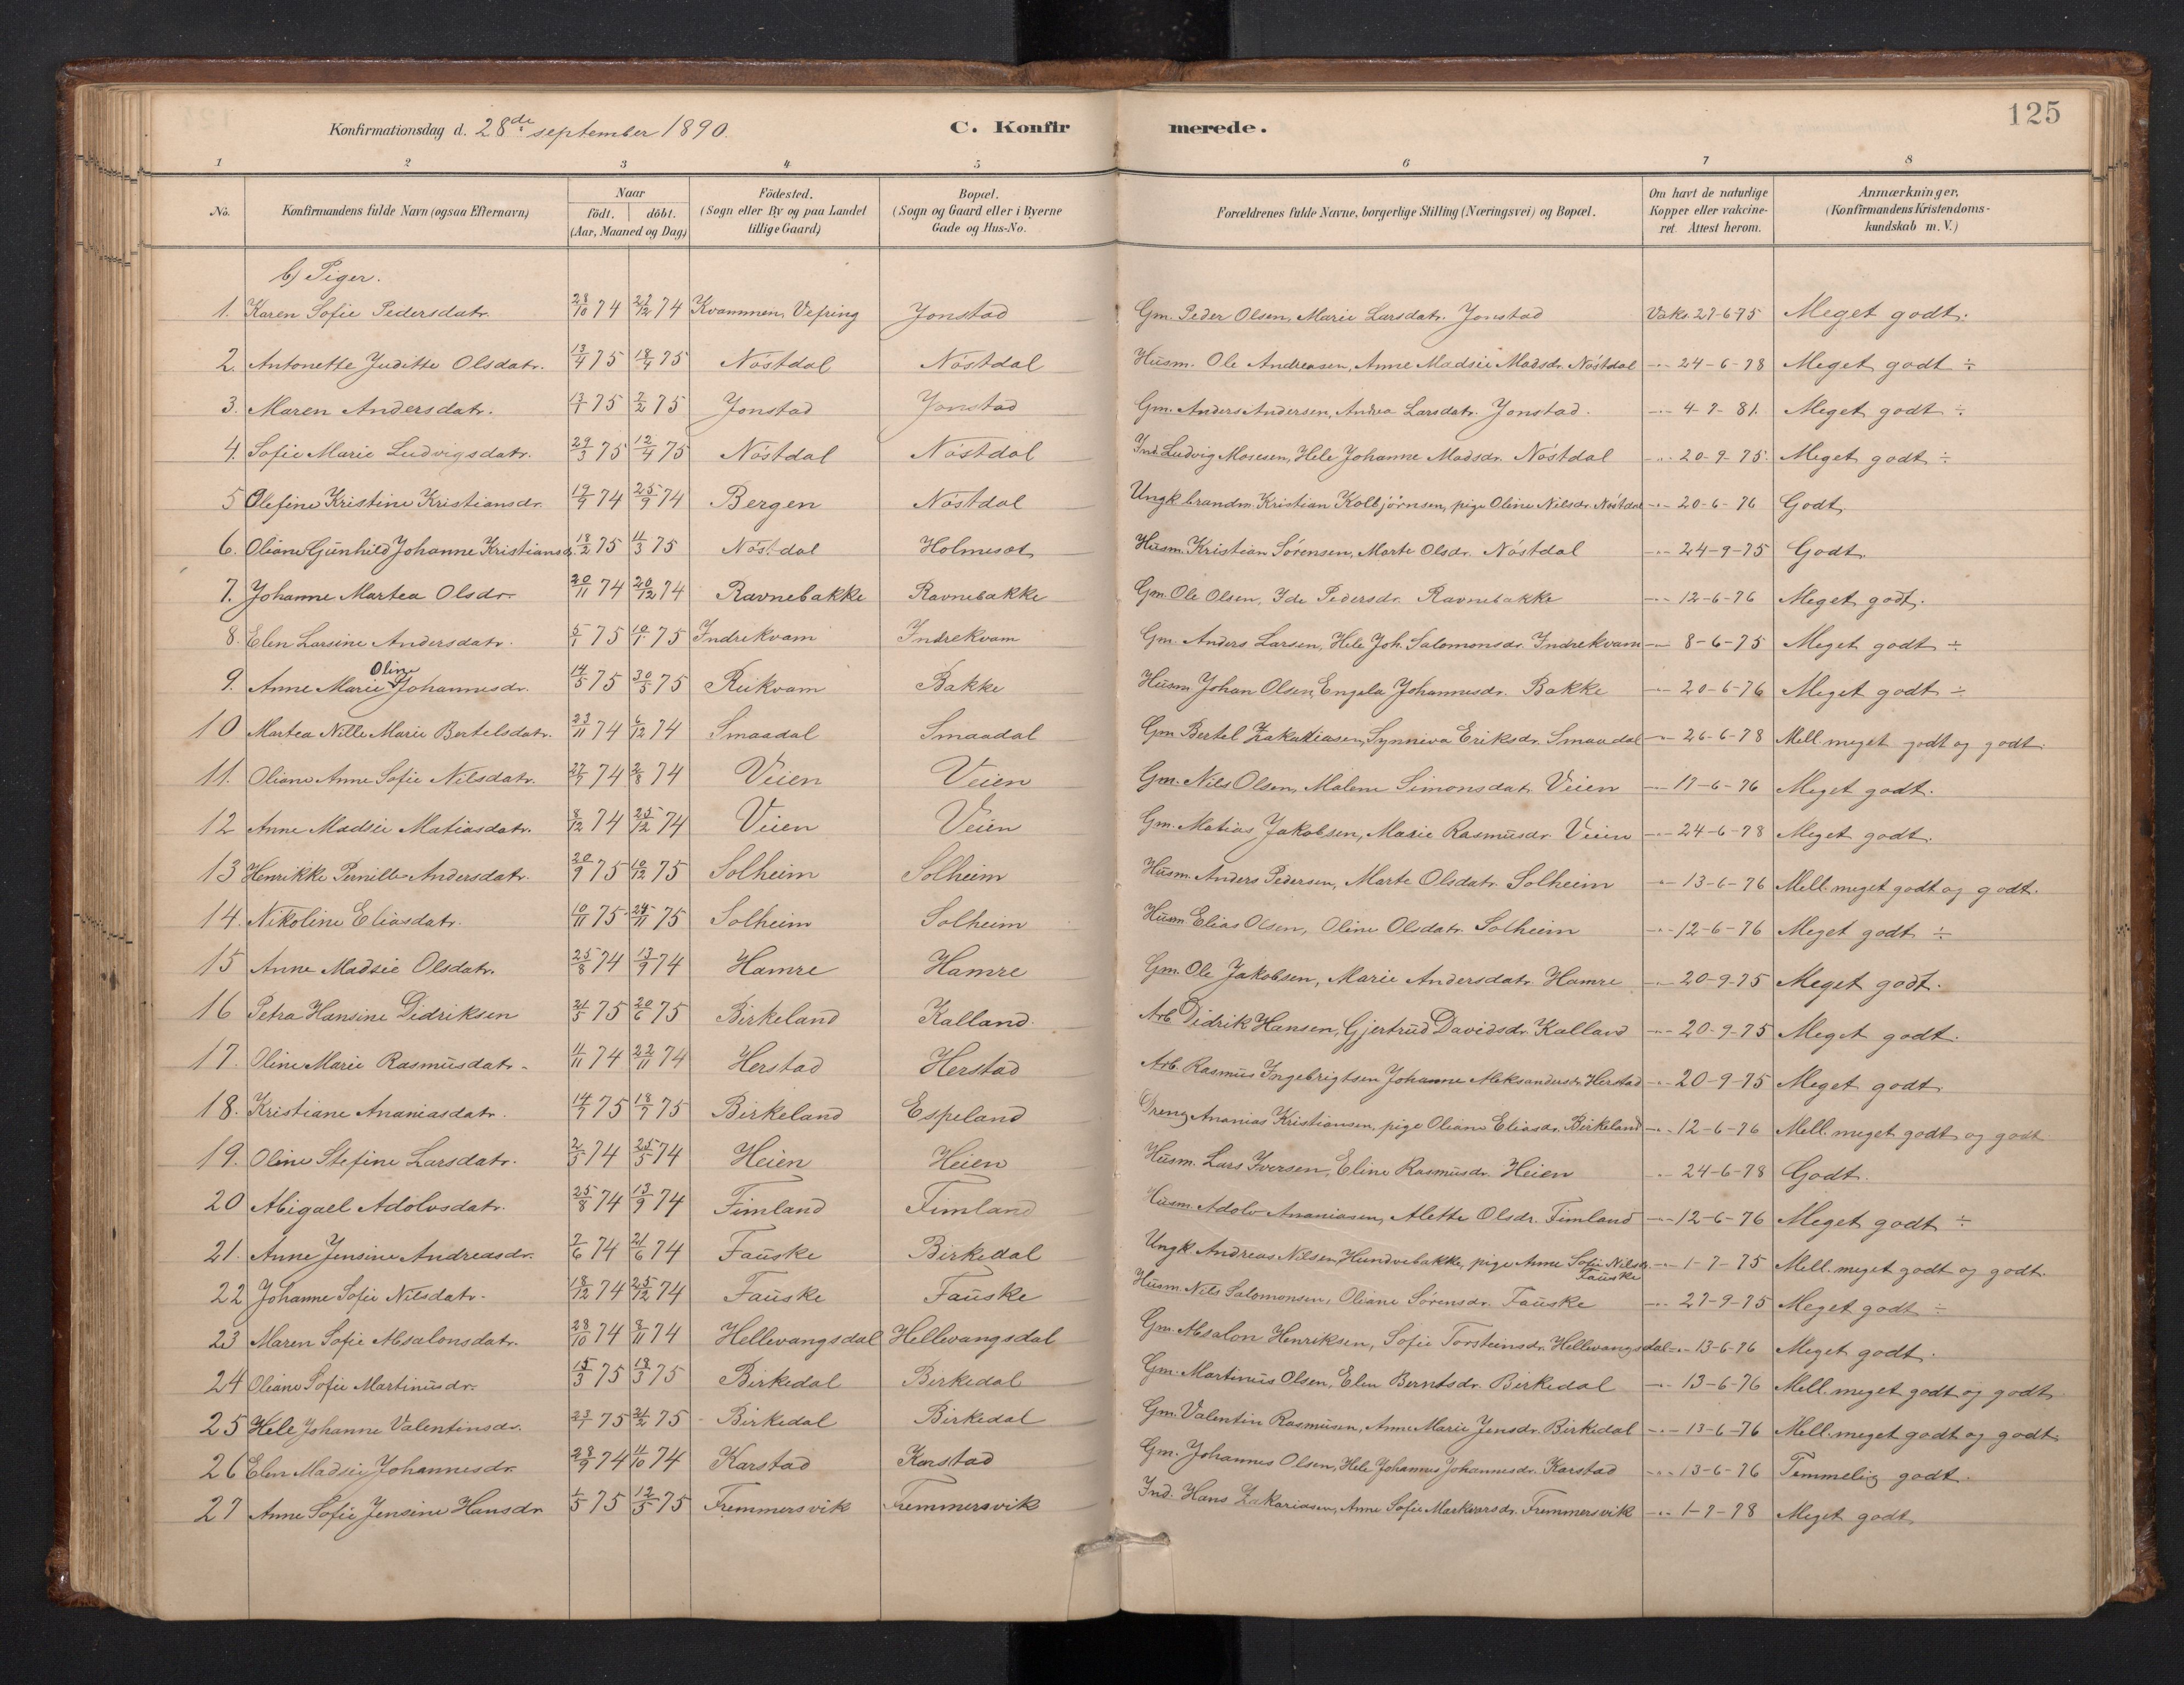 125
Konfirmationsdag d. 28de september 1890. C. Konfirmerede.
1 2 3 4 5 6 7 8
No. Konfirmandens fulde Navn (ogsaa Efternavn) Naar födt. döbt. (Aar, Maaned og Dag) Födested. (Sogn eller By og paa Landet tillige Gaard) Bopæl. (Sogn og Gaard eller i Byerne Gade og Hus-No. Forældrenes fulde Navne, borgerlige Stilling (Næringsvei) og Bopæl. Om havt de naturlige Kopper eller vakcineret. Attest herom. Anmærkninger, (Konfirmandens Kristendomskundskab m. V.)
b) Piger.
1. Karen Sofie Pedersdatr. 28/10 74 27/12 74 Kvammen, Vefring Jonstad Gm. Peder Olsen, Marie Larsdatr. Jonstad Vaks. 27-6-75 Meget godt.
2. Antonette Juditte Olsdatr. 13/4 75 18/4 75 Nöstdal Nöstdal Husm. Ole Andreasen, Anne Madsie Madsdr. Nöstdal -"- 24-6-78 Meget godt ÷
3. Maren Andersdatr. 13/1 75 7/2 75 Jonstad Jonstad Gm. Anders Andersen, Andrea Larsdatr. Jonstad. -"- 4-7-81. Meget godt ÷
4. Sofie Marie Ludvigsdatr. 29/3 75 12/4 75 Nöstdal Nöstdal Ind. Ludvig Mosesen, Hele Johanne Madsdr. Nöstdal -"- 20-9-75. Meget godt ÷
5 Olefine Kristine Kristiansdr. 19/9 74 25/9 74 Bergen Nöstdal Ungk. brandm. Kristian Kolbjörnsen, pige Oline Nilsdr. Nöstdal -"- 20-6-76 Godt
6. Oliane Gunhild Johanne Kristiansd. 18/2 75 11/3 75 Nöstdal Holmeset Husm. Kristian Sörensen, Marte Olsdr. Nöstdal -"- 24-9-75 Godt.
7. Johanne Martea Olsdr. 20/11 74 20/12 74 Ravnebakke Ravnebakke Gm. Ole Olsen, Ide Pedersdr. Ravnebakke -"- 12-6-76 Meget godt.
8. Elen Larsine Andersdatr. 5/1 75 10/1 75 Indrekvam Indrekvam Gm. Anders Larsen, Hele Joh. Salomonsdr. Indrekvam -"- 8-6-75 Meget godt ÷
9. Anne Marie Oline Johannesdr. 14/5 75 30/5 75 Reikvam Bakke Husm. Johan Olsen, Engela Johannesdr. Bakke -"- 20-6-76 Meget godt ÷
10 Martea Nille Marie Bertelsdatr. 23/11 74 6/12 74 Smaadal Smaadal Gm. Bertel Zakariasen, Synneva Eriksdr. Smaadal -"- 26-6-78 Mell. meget godt og godt.
11. Oliane Anne Sofie Nilsdatr. 27/7 74 2/8 74 Veien Veien Gm. Nils Olsen, Malene Simonsdatr. Veien -"- 17-6-76 Meget godt.
12 Anne Madsie Matiasdatr. 8/12 74 25/12 74 Veien Veien Gm. Matias Jakobsen, Marie Rasmusdr. Veien -"- 24-6-78 Meget godt.
13 Henrikke Pernille Andersdatr. 20/9 75 10/12 75 Solheim Solheim Husm. Anders Pedersen, Marte Olsdatr. Solheim -"- 13-6-76 Mell. meget godt og godt.
14. Nikoline Eliasdatr. 10/11 75 24/11 75 Solheim Solheim Husm. Elias Olsen, Oline Olsdatr. Solheim -"- 12-6-76 Meget godt ÷
15 Anne Madsie Olsdatr. 25/8 74 13/9 74 Hamre Hamre Gm. Ole Jakobsen, Marie Andersdatr. Hamre -"- 20-9-75 Meget godt.
16 Petra Hansine Didriksen 21/5 75 20/6 75 Birkeland Kalland. Arb. Didrik Hansen, Gjertrud Davidsdr. Kalland -"- 20-9-75 Meget godt.
17. Oline Marie Rasmusdatr. 11/11 74 22/11 74 Herstad Herstad Arb. Rasmus Ingebrigtsen Johanne Aleksandersdr. Herstad -"- 20-9-75 Meget godt
18. Kristiane Ananiasdatr. 14/7 75 18/7 75 Birkeland Espeland Dreng Ananias Kristiansen, pige Oliane Eliasdr. Birkeland -"- 12-6-76 Mell. meget godt og godt
19. Oline Stefine Larsdatr. 2/5 74 25/5 74 Heien Heien Husm. Lars Iversen, Eline Rasmusdr. Heien -"- 24-6-78 Godt.
20 Abigael Adolvsdatr. 25/8 74 13/9 74 Fimland Fimland Husm. Adolv Ananiasen, Alette Olsdr. Fimland -"- 12-6-76 Meget godt ÷
21. Anne Jensine Andreasdr. 7/6 74 21/6 74 Fauske Birkedal Ungk. Andreas Nilsen, Hundvebakke, pige Anne Sofie Nilsdr. Fauske -"- 1-7-75 Mell. meget godt og godt.
22 Johanne Sofie Nilsdatr. 18/12 74 25/12 74 Fauske Fauske Husm. Nils Salomonsen, Oliane Sörensdr. Fauske -"- 27-9-75 Meget godt ÷
23 Maren Sofie Absalonsdatr. 28/10 74 8/11 74 Hellevangsdal Hellevangsdal Gm. Absalon Henriksen, Sofie Torsteinsdr. Hellevangsdal -"- 13-6-76 Meget godt.
24 Oliane Sofie Martinusdr. 15/3 75 18/3 75 Birkedal Birkedal Gm. Martinus Olsen, Elen Berntsdr. Birkedal -"- 13-6-76 Mell. meget godt og godt
25 Hele Johanne Valentinsdr. 23/1 75 21/2 75 Birkedal Birkedal Gm. Valentin Rasmusen, Anne Marie Jensdr. Birkedal -"- 13-6-76 Mell. meget godt og godt
26 Elen Madsie Johannesdr. 28/9 74 11/10 74 Karstad Karstad Gm. Johannes Olsen, Hele Johannes Johannesdr. Karstad -"- 13-6-76 Temmelig godt.
27 Anne Sofie Jensine Hansdr. 1/5 75 12/5 75 Fremmersvik Fremmersvik Ind. Hans Zakariasen, Anne Sofie Markvorsdr. Fremmersvik -"- 1-7-78 Meget godt